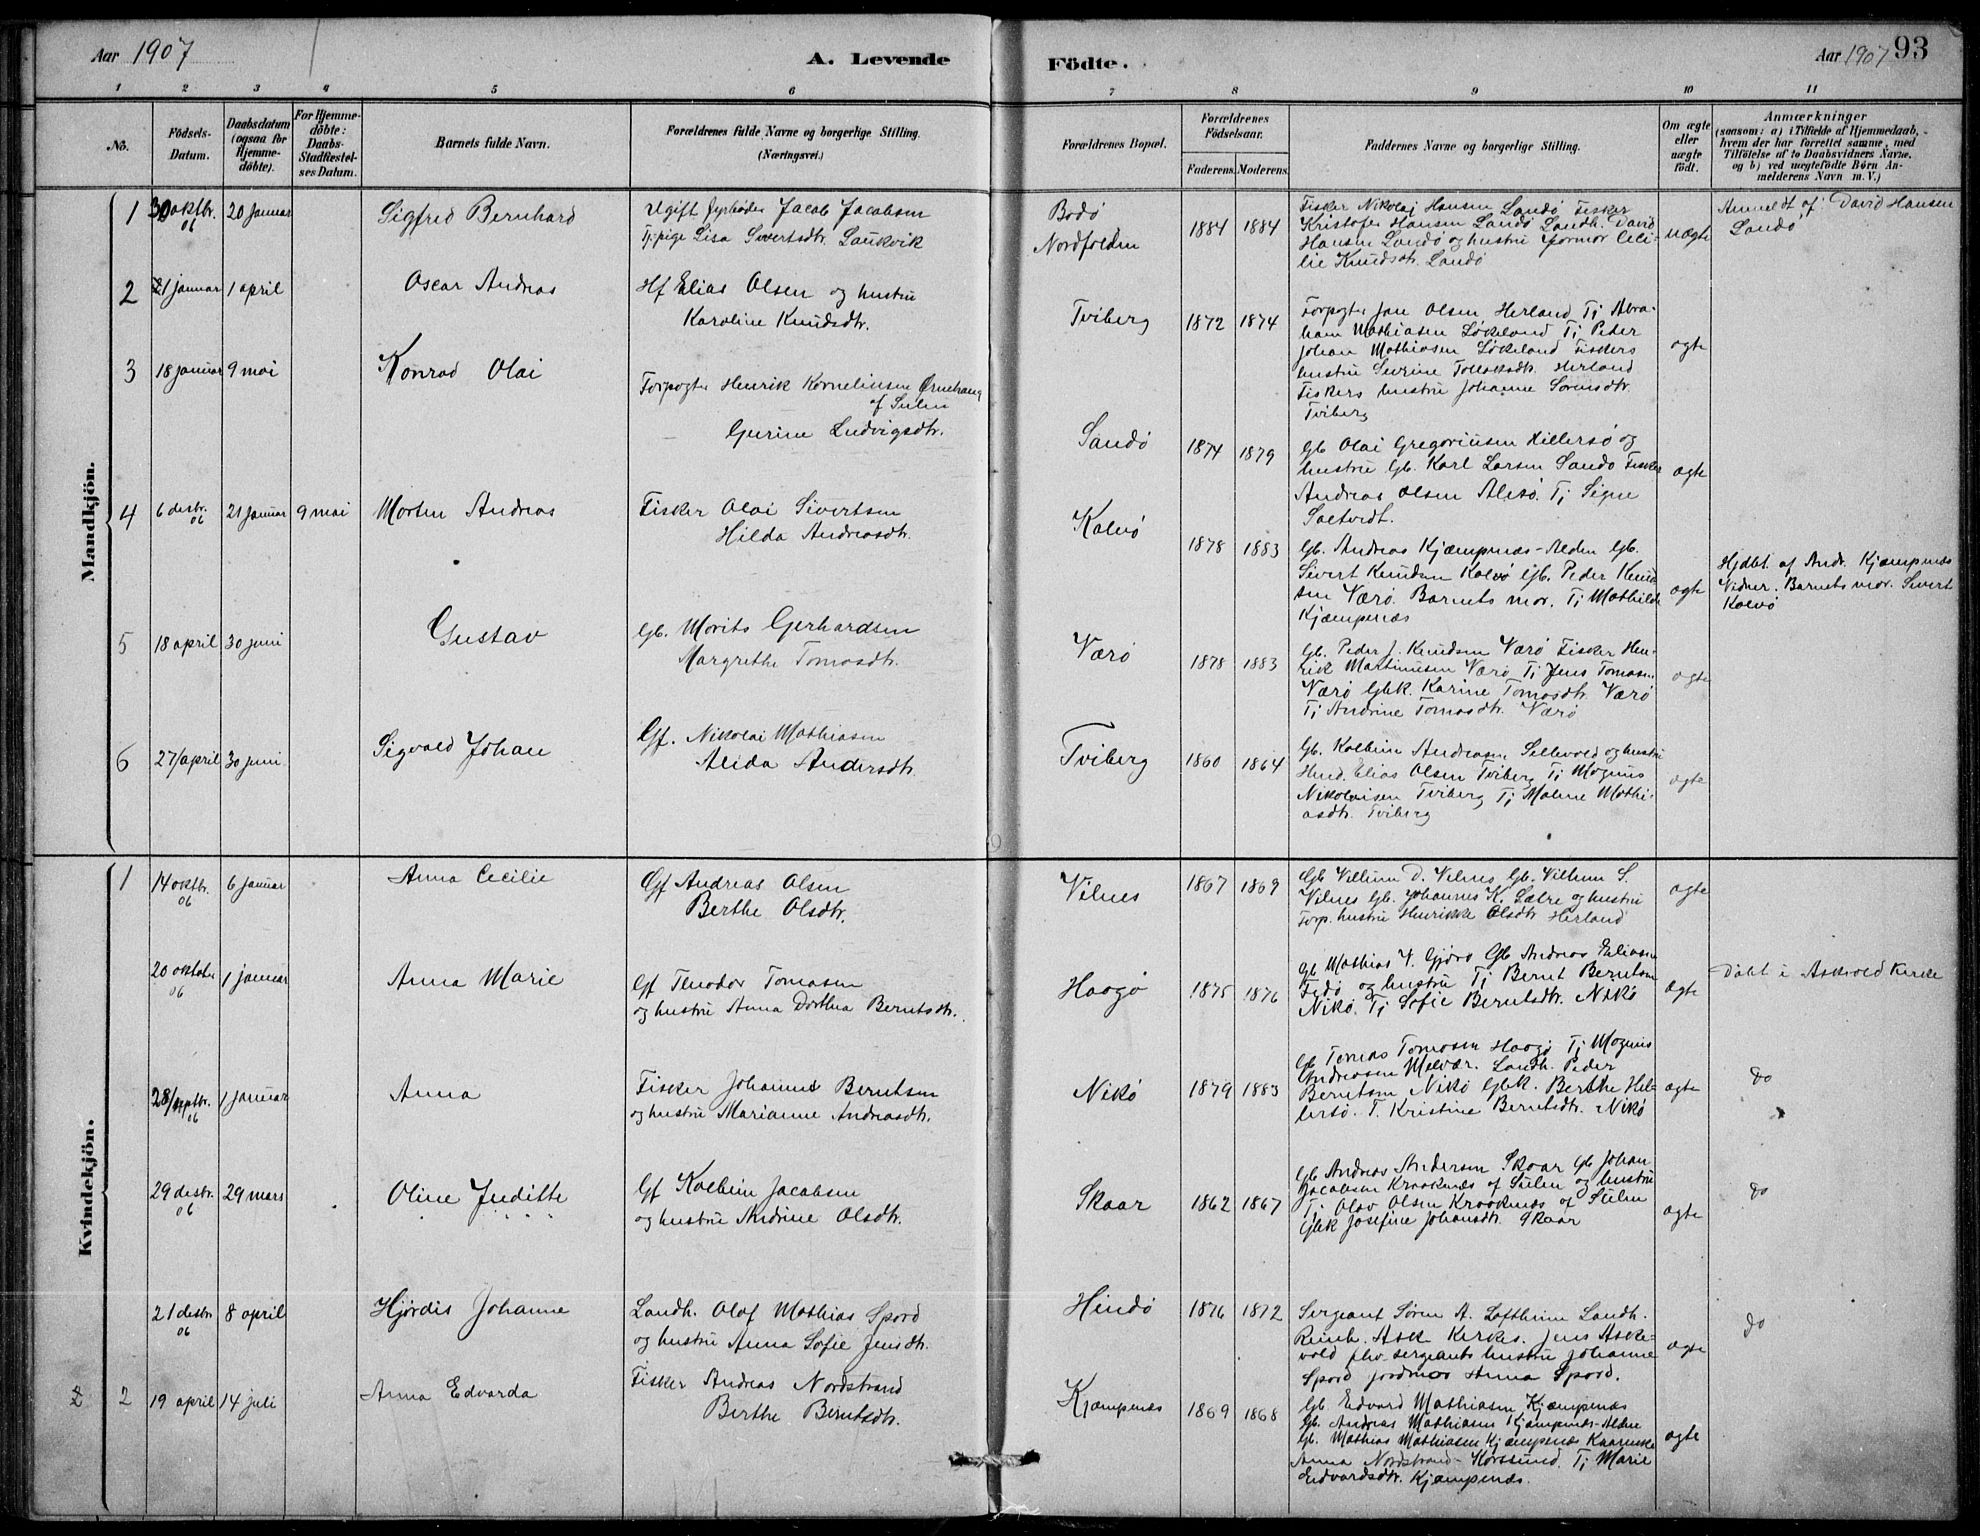 Aar 1907
A. Levende
Födte.
Aar 1907 93
1 2 3 4 5 6 7 8 9 10 11
No.
Födsels-Datum.
Daabsdatum (ogsaa for Hjemme-döbte).
For Hjemme-döbte: Daabs-Stadfæstel-ses Datum.
Barnets fulde Navn.
Forældrenes fulde Navne og borgerlige Stilling.
(Næringsvei.)
Forældrenes Bopæl.
Forældrenes Födselsaar.
Faderens. Moderens.
Faddernes Navne og borgerlige Stilling.
Om ægte eller uægte födt.
Anmærkninger
(saasom: a) i Tilfælde af Hjemmedaab, hvem der har forrettet samme, med Tilföielse af to Daabsvidners Navne, og b) ved uægtefödte Börn An-melderens Navn m. V.)
Mandkjön.
1 30 oktbr. 06 20 Januar Sigfred Bernhard
Ugift fyrbøder Jacob Jacobsen
Tj. pige Lisa Sivertsdtr. Laukvik
Bodø
Nordfolden
1884 1884
Fisker Nikolaj Hansen Landø Fisker
Kristofer Hansen Landø Landh. David
Hansen Landø og hustru Jormor Ceci-
lie Knudsdtr. Landø
uægte
Anmeldt af David Hansen
Landø
2 21 januar 1 april Oscar Andreas
Hf Elias Olsen og hustru
Karoline Knudsdtr.
Tviberg 1872 1874
Forpagter Jan Olsen Herland Tj Abra-
ham Mathiasen Løkeland Tj Peder
Johan Mathiasen Løkeland Fiskers
hustru Severine Tollaksdtr. Herland
Fiskers hustru Johanne Sorensdtr
Tviberg
ægte
3 18 januar 9 mai Konrad Olai
Forpagter Henrik Kornelinsen Ørnehaug
af Sulen
Gurine Ludvigsdtr.
Sandø 1874 1879
Gb Olai Gregoriusen Hillersø og
hustru Gb. Karl Larsen Sandø Fisker
Andreas Olsen Alesø. Tj Signe
Saltvedt.
ægte
4 6 desbr. 06 21 Januar 9 mai Morten Andreas
Fisker Olai Sivertsen
Hilda Andreasdtr.
Kalvø 1878 1883
Gb. Andreas Kjæmpenæs-Alden Gb.
Sivert Knudsen Kalvø Gb. Peder Knud
sen Værø. Barnets mor. Tj Mathilde
Kjæmpenæs
ægte
Hjdbt af Andr. Kjæmpenæs
Vidner. Barnets mor. Sivert
Kalvø
5 18 april 30 juni Gustav
Gb. Morits Gerhardsen
Margrethe Tomasdtr.
Værø 1878 1883
Gb. Peder J. Knudsen Værø Fisker Hen-
rik Martinusen Værø Tj Jens Tomasen
Værø Gbk. Karine Tomasdtr. Værø
Tj Andrine Tomasdtr. Værø
ægte
6 27/april 30 juni Sigvald Johan
Gf. Nikolai Mathiasen
Alida Andersdtr.
Tviberg 1860 1864
Gb. Kolbein Andreasen Sellevold og hustru
Husd. Elias Olsen Tviberg Tj Magnus
Nikolaisen Tviberg Tj Malene Mathi-
asdtr. Tviberg
ægte
Kvindekjön.
1 14 oktbr. 06 6 januar Anna Cecilie
Gf Andreas Olsen
Berthe Olsdtr.
Vilnes 1867 1869
Gb Villum D. Vilnes Gb. Vilhem S.
Vilnes Gb. Johannes K. Sælre og hustru
Forp. hustru Henrikke Olsdtr Herland
ægte
20 oktober 06 1 januar Anna Marie
Gf Theodor Tomasen
og hustru Anna Dorthea Berntsdtr.
Haagø 1875 1876
Gb Mathias V. Gjørø Gb Andreas Eliasen
Fedø og hustru Tj Bernt Berntsen
Nikø. Tj Sofie Berntsdtr. Nikø
ægte
Døbt i Askvold Kirke
28/septbr. 06 1 januar Anna
Fisker Johannes Berntsen
og hustru Marianne Andreasdtr.
Nikø 1879 1883
Gb Tomas Tomasen Haagø Tj Magnus
Andreasen Melvær. Landh. Peder
Berntsen Nikø Gbk. Berthe Hil-
lersø. T. Kristine Berntsdtr. Nikø
ægte
do
29 desbr. 06 29 mars Oline Juditte
Gf Kolbein Jacobsen
og hustru Andrine Olsdtr.
Skaar 1862 1867
Gb Andreas Andersen Skaar Gb Johan
Jacobsen Kraakenæs af Sulen og hustru
Tj Olav Olsen Kraakenæs af Sulen
Gbk Josefine Johansdtr. Skaar
ægte
do
21 desbr 06 8 april Hjørdis Johanne
Landh. Olaf Mathias Spord
og hustru Anna Sofie Jensdtr.
Hindø 1876 1872
Sergeant Søren A. Loftheim Landh.
Reinh. Ask Kirkes. Jens Aske-
vold phv sergeants hustru Johanne
Spord jordmor Anna Spord.
ægte
do
2 2 19 april 14 juli Anna Edvarda
Fisker Andreas Nordstrand
Berthe Berntsdtr.
Kjæmpenæs 1869 1868
Gb. Edvard Mathiasen Kjæmpenæs
Gb. Andreas Mathiasen Kjæmpenæs-Alden
Gb. Mathias Mathiasen Kjæmpenæs
Anna Nordstrand-Korssund. Tj Marie
Edvardsdtr. Kjæmpenæs.
ægte